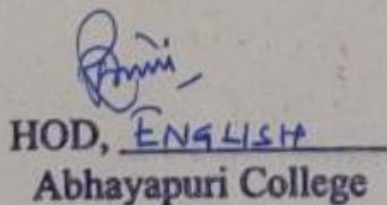 HOD, ENGLISH
Abhayapuri College